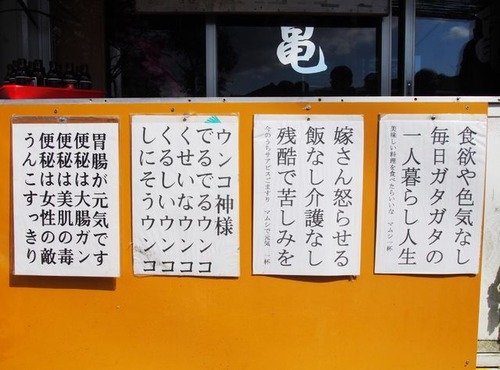 亀
食欲や色気なし
毎日ガタガタの
一人暮らし人生
美味しい料理を食べたらいいな マムシ一杯
嫁さん怒らせる
飯なし介護なし
残酷で苦しみを
今のうちサアビスごますり マムシで元気一杯
ウンコ神様
でるでるウンコ
くせいなウンコ
くるしいウンコ
しにそうウンコ
胃腸が元気です
便秘は大腸ガン
便秘は美肌の毒
便秘は女性の敵
うんこすっきり